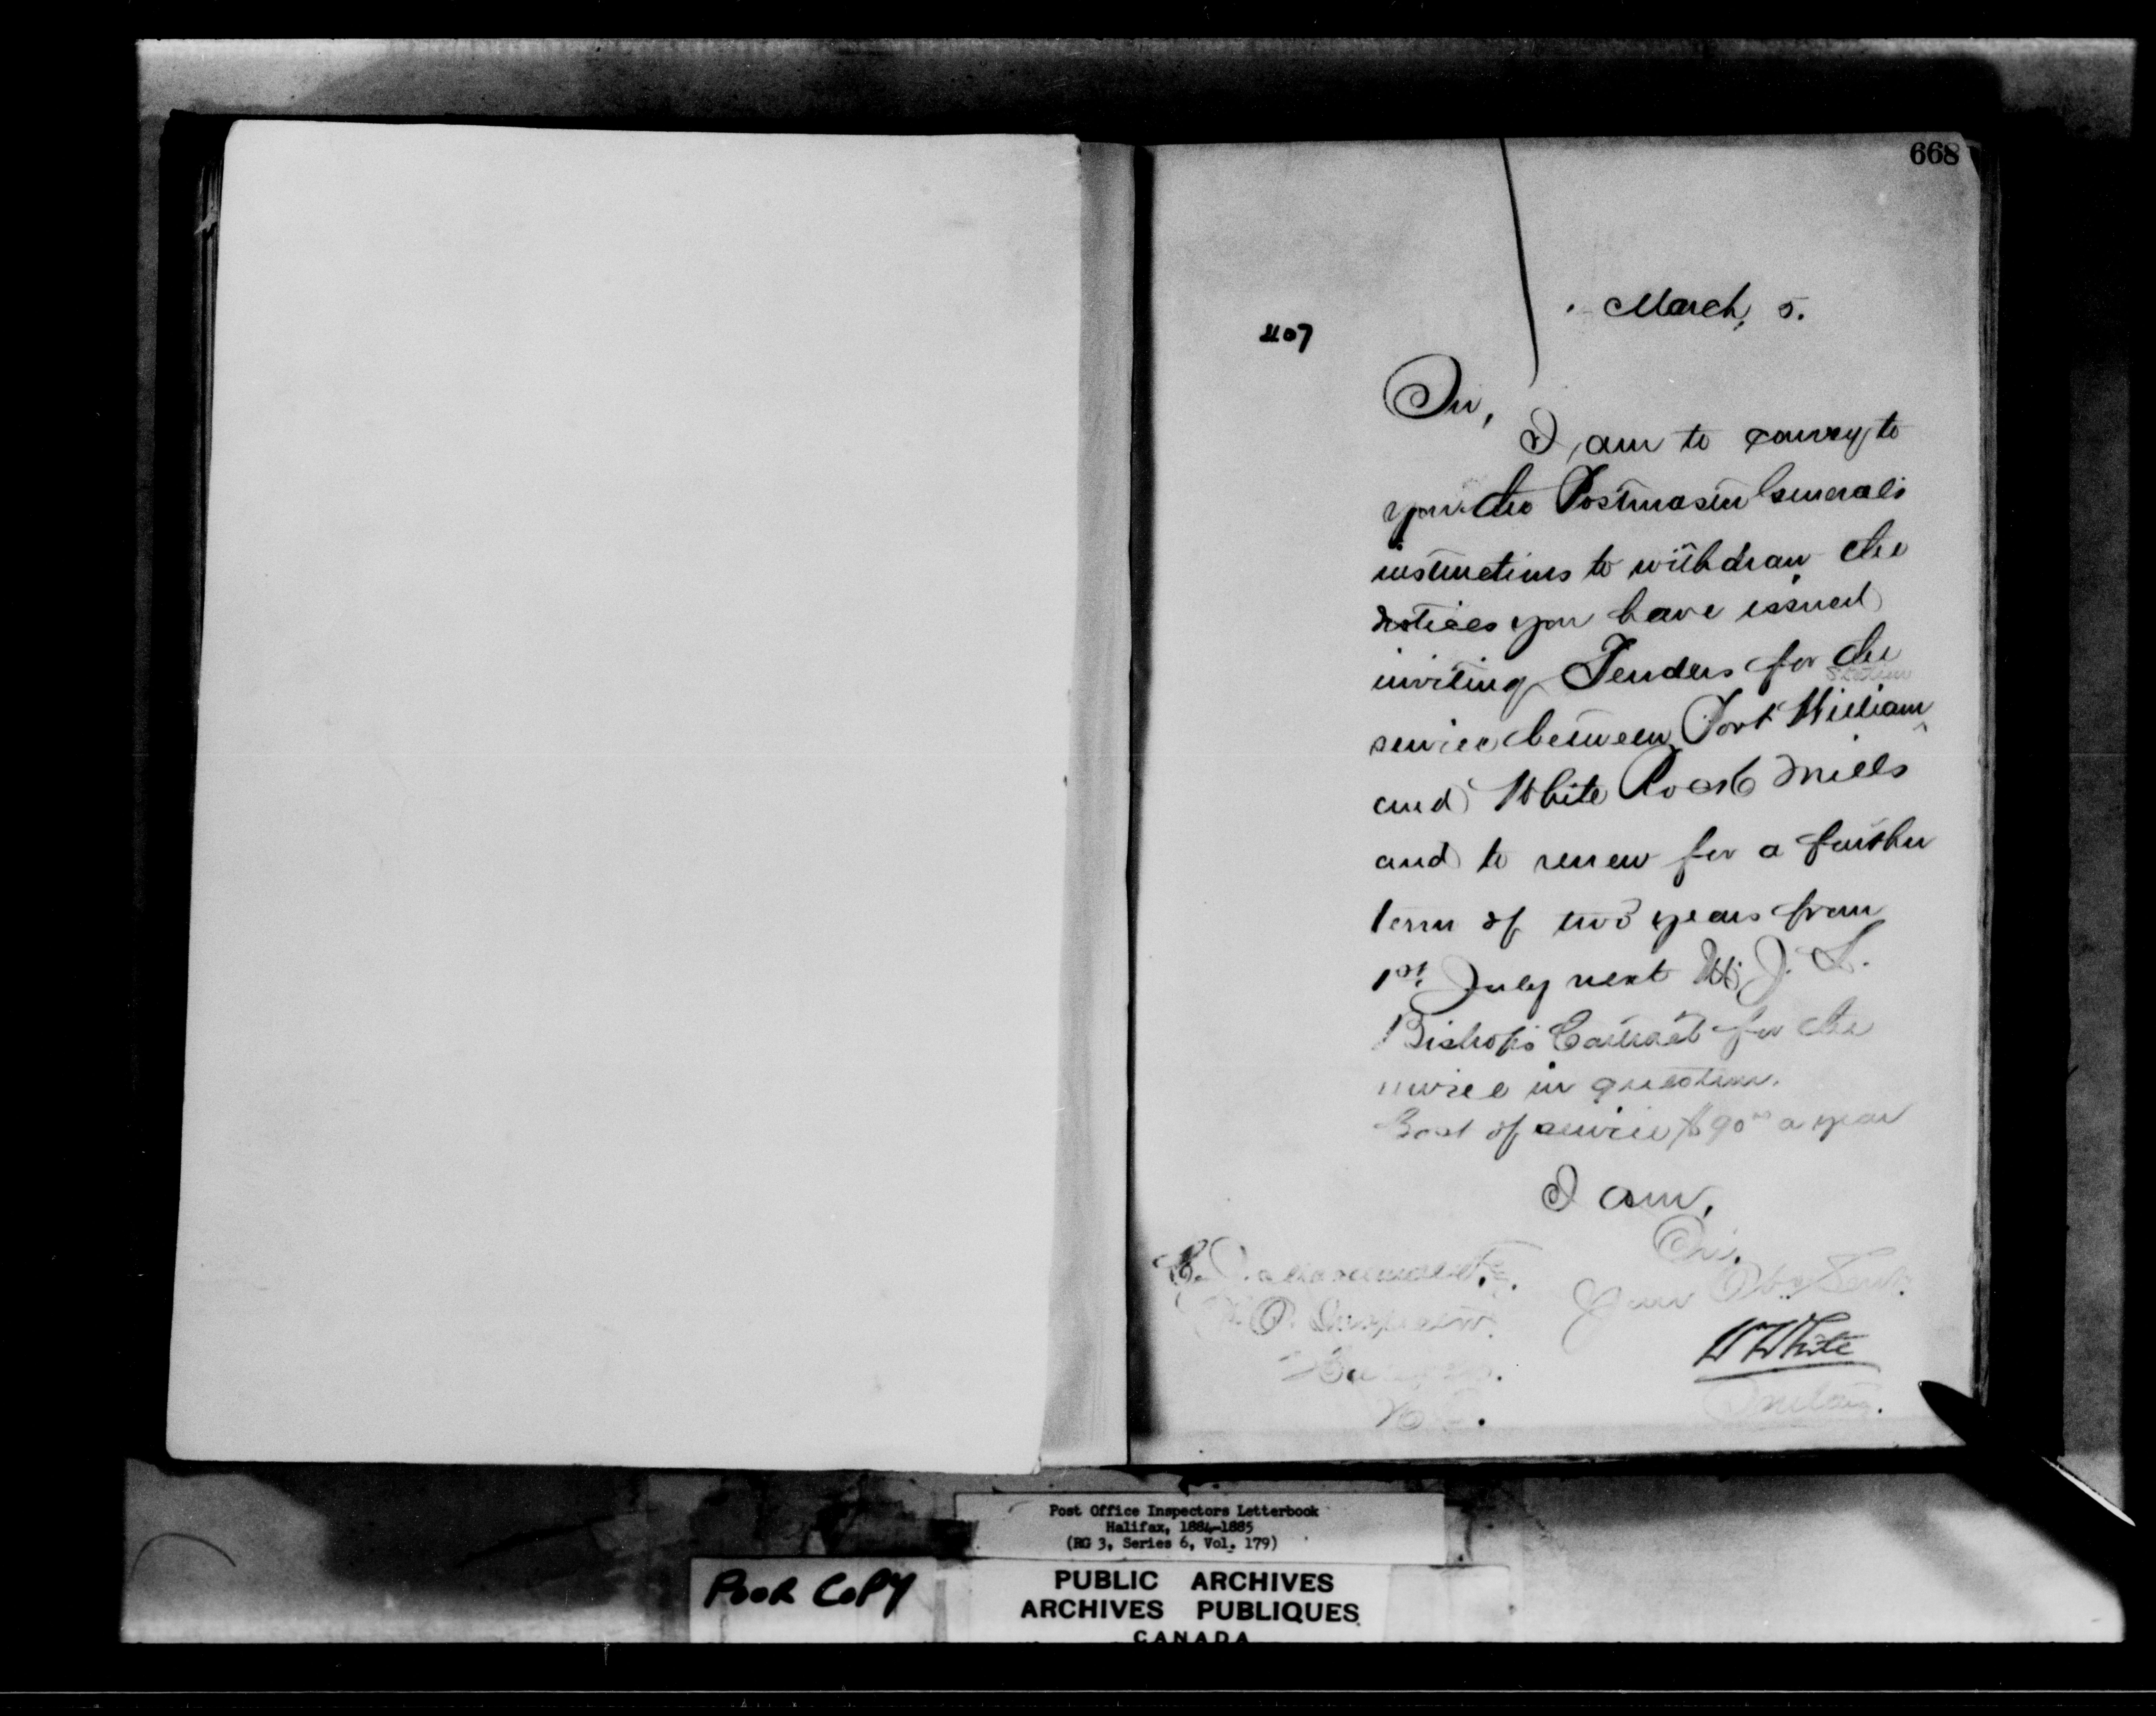 668
March, 5.
407
Sir,
I am to convey to
you the Postmaster General's
instructions to withdraw the
notices you have issued
inviting Tenders for the
Station
service between Port William
and White Rock Mills
and to renew for a further
term of two years from
1st July next W. J. L.
Bishop's Contract for the
service in question.
Cost of service $90 00 a year
I am,
Sir,
Your Obt Servt.
P. O. Inspector.
W White
Secretary.
Post Office Inspectors Letterbook
Halifax, 1884-1885
(RG 3, Series 6, Vol. 179)
POOR COPY
PUBLIC ARCHIVES
ARCHIVES PUBLIQUES
CANADA